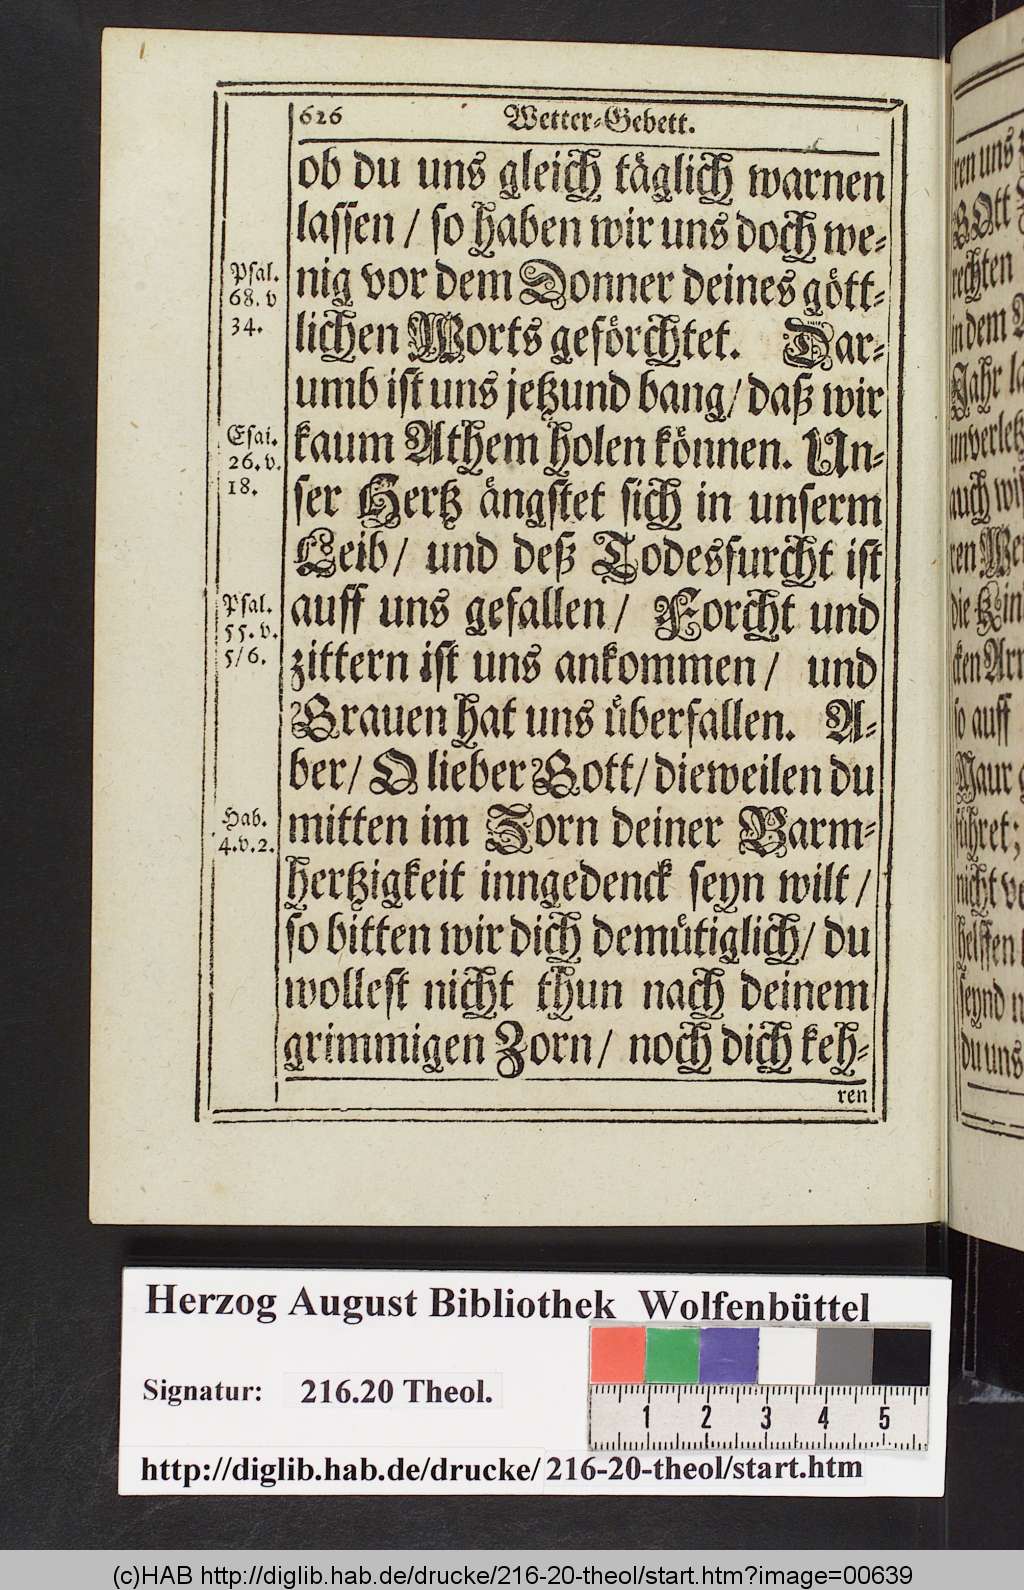 626 Wetter-Gebett.
ob du uns gleich täglich warnen
lassen / so haben wir uns doch we-
nig vor dem Donner deines gött-
lichen Worts geförchtet. Dar-
umb ist uns jetzund bang / daß wir
kaum Athem holen können. Un-
ser Hertz ängstet sich in unserm
Leib / und deß Todesfurcht ist
auff uns gefallen / Forcht und
zittern ist uns ankommen / und
Grauen hat uns überfallen. A-
ber / O lieber Gott / dieweilen du
mitten im Zorn deiner Barm-
hertzigkeit inngedenck seyn wilt /
so bitten wir dich demütiglich / du
wollest nicht thun nach deinem
grimmigen Zorn / noch dich keh-
ren
Psal.
68. v
34.
Esai.
26. v.
18.
Psal.
55. v.
5/6.
Hab.
4. v. 2.
ren uns
GOtt
rechten
in dem
Jahr
unverletz
auch
ren
die Kin
cken Ar
so auff
Maur
führet;
nicht
helffen
seynd
du uns
Herzog August Bibliothek Wolfenbüttel
Signatur: 216.20 Theol.
1 2 3 4 5
http://diglib.hab.de/drucke/216-20-theol/start.htm
(c)HAB http://diglib.hab.de/drucke/216-20-theol/start.htm?image=00639